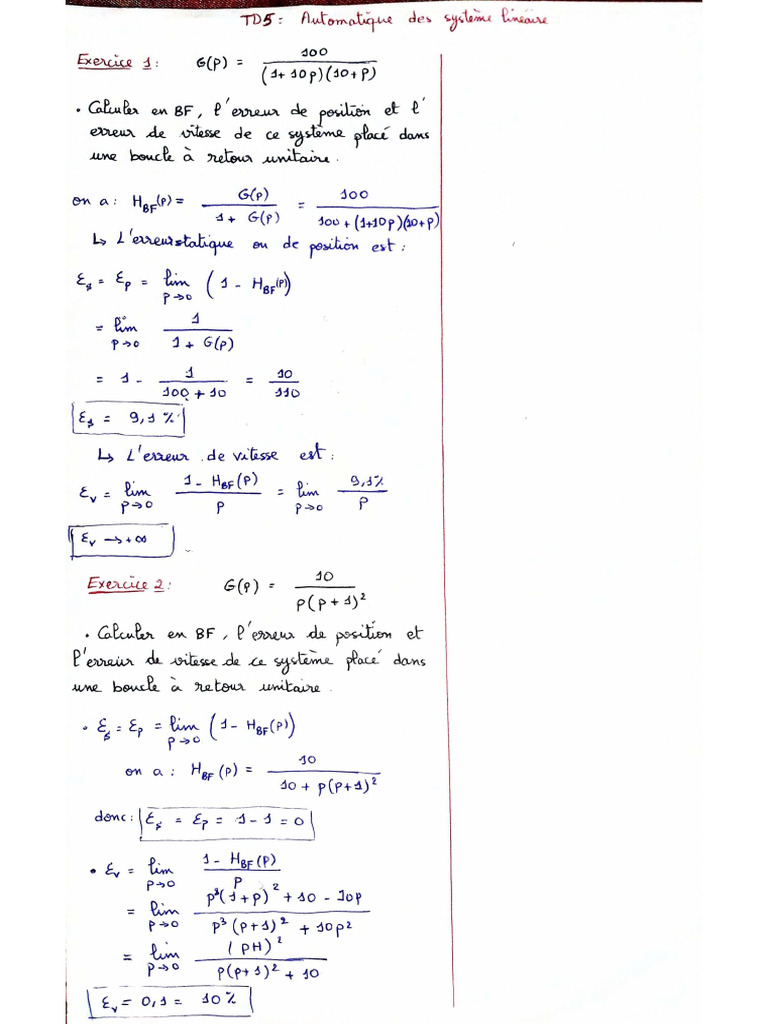 TD5 : Automatique des système linéaire
Exercice 1 : G(p) = 100 / (1+10p)(10+p)
• Calculer en BF, l'erreur de position et l'
erreur de vitesse de ce système placé dans
une boucle à retour unitaire.
on a : H_BF(p) = G(p) / 1 + G(p) = 100 / 100 + (1+10p)(10+p)
↳ L'erreur statique ou de position est :
Ɛs = Ɛp = lim p→0 (1 - H_BF(p))
= lim p→0 1 / 1 + G(p)
= 1 - 1 / 100 + 10 = 10 / 110
Ɛs = 9,1 %
↳ L'erreur de vitesse est :
Ɛv = lim p→0 1 - H_BF(p) / p = lim p→0 9,1% / p
Ɛv → +∞
Exercice 2 : G(p) = 10 / p(p+1)²
• Calculer en BF, l'erreur de position et
l'erreur de vitesse de ce système placé dans
une boucle à retour unitaire.
• Ɛs = Ɛp = lim p→0 (1 - H_BF(p))
on a : H_BF(p) = 10 / 10 + p(p+1)²
donc : Ɛs = Ɛp = 1 - 1 = 0
• Ɛv = lim p→0 1 - H_BF(p) / p
= lim p→0 p³(1+p)² + 10 - 10p / p³(p+1)² + 10p²
= lim p→0 (pH)² / p(p+1)² + 10
Ɛv = 0,1 = 10 %